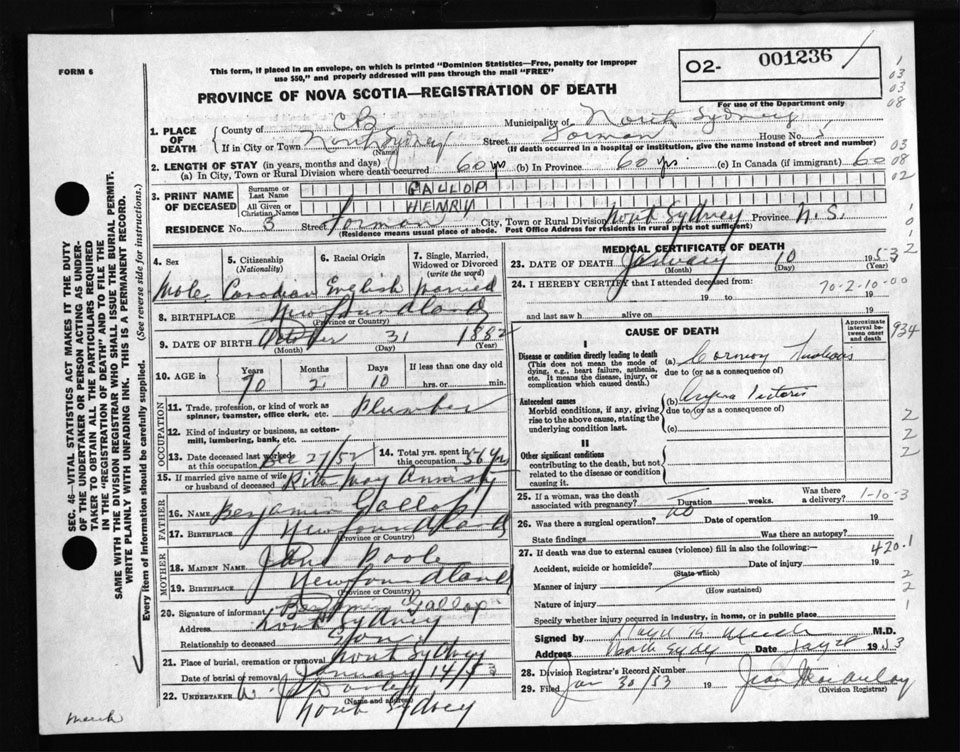 FORM 6
This form, if placed in an envelope, on which is printed "Dominion Statistics—Free, penalty for improper
use $50," and properly addressed will pass through the mail "FREE"
O2- 001236 /
For use of the Department only
PROVINCE OF NOVA SCOTIA—REGISTRATION OF DEATH
1. PLACE OF DEATH
County of C B Municipality of North Sydney
If in City or Town North Sydney (Name) Street Forman House No. 3
(If death occurred in a hospital or institution, give the name instead of street and number)
2. LENGTH OF STAY (in years, months and days)
(a) In City, Town or Rural Division where death occurred 60 yrs (b) In Province 60 yrs. (c) In Canada (if immigrant) 60
3. PRINT NAME OF DECEASED
Surname or Last Name GALLOP
All Given or Christian Names
RESIDENCE No. 3 Street Forman City, Town or Rural Division North Sydney Province N.S.
(Residence means usual place of abode. Post Office Address for residents in rural parts not sufficient)
4. Sex
5. Citizenship (Nationality)
6. Racial Origin
7. Single, Married, Widowed or Divorced (write the word)
Male Canadian English married
8. BIRTHPLACE Newfoundland
(Province or Country)
9. DATE OF BIRTH October 31 1882
(Month) (Day) (Year)
10. AGE in Years 70 Months 2 Days 10 If less than one day old hrs. or min.
OCCUPATION
11. Trade, profession, or kind of work as spinner, teamster, office clerk, etc. Plumber
12. Kind of industry or business, as cotton-mill, lumbering, bank, etc.
13. Date deceased last worked at this occupation Dec 27/52
14. Total yrs. spent in this occupation 56 yrs
15. If married give name of wife or husband of deceased May
FATHER
16. NAME Benjamin Gallop
17. BIRTHPLACE Newfoundland
(Province or Country)
MOTHER
18. MAIDEN NAME Jane Poole
19. BIRTHPLACE Newfoundland
(Province or Country)
20. Signature of informant Benjamin Gallop
Address North Sydney
Relationship to deceased Son
21. Place of burial, cremation or removal North Sydney
Date of burial or removal January 14/53
22. UNDERTAKER W. J.
(Name and address)
North Sydney
MEDICAL CERTIFICATE OF DEATH
23. DATE OF DEATH January 10 1953
(Month) (Day) (Year)
24. I HEREBY CERTIFY that I attended deceased from:
70-2-10-00
19 to 19
and last saw h alive on 19
CAUSE OF DEATH
Approximate interval between onset and death
I
Disease or condition directly leading to death
(This does not mean the mode of dying, e.g., heart failure, asthenia, etc. It means the disease, injury, or complication which caused death.)
(a)
due to (or as a consequence of)
Antecedent causes
Morbid conditions, if any, giving rise to the above cause, stating the underlying condition last.
(b) Angina Pectoris
due to (or as a consequence of)
(c)
II
Other significant conditions
contributing to the death, but not related to the disease or condition causing it.
25. If a woman, was the death associated with pregnancy? Duration weeks. Was there a delivery? 1-10-3
26. Was there a surgical operation? Date of operation 19
State findings Was there an autopsy?
27. If death was due to external causes (violence) fill in also the following:— 420.1
Accident, suicide or homicide? Date of injury 19
(State which)
Manner of injury
(How sustained)
Nature of injury
Specify whether injury occurred in industry, in home, or in public place
Signed by M.D.
Address North Sydney Date 1953
28. Division Registrar's Record Number
29. Filed Jan 30/53 19
(Division Registrar)
SEC. 46—VITAL STATISTICS ACT MAKES IT THE DUTY
OF THE UNDERTAKER OR PERSON ACTING AS UNDER-
TAKER TO OBTAIN ALL THE PARTICULARS REQUIRED
IN THE "REGISTRATION OF DEATH" AND TO FILE THE
SAME WITH THE DIVISION REGISTRAR WHO SHALL ISSUE THE BURIAL PERMIT.
WRITE PLAINLY WITH UNFADING INK. THIS IS A PERMANENT RECORD.
Every item of information should be carefully supplied. (See reverse side for instructions.)
1
03
03
08
03
08
02
1
0
1
2
934
2
2
2
2
2
1